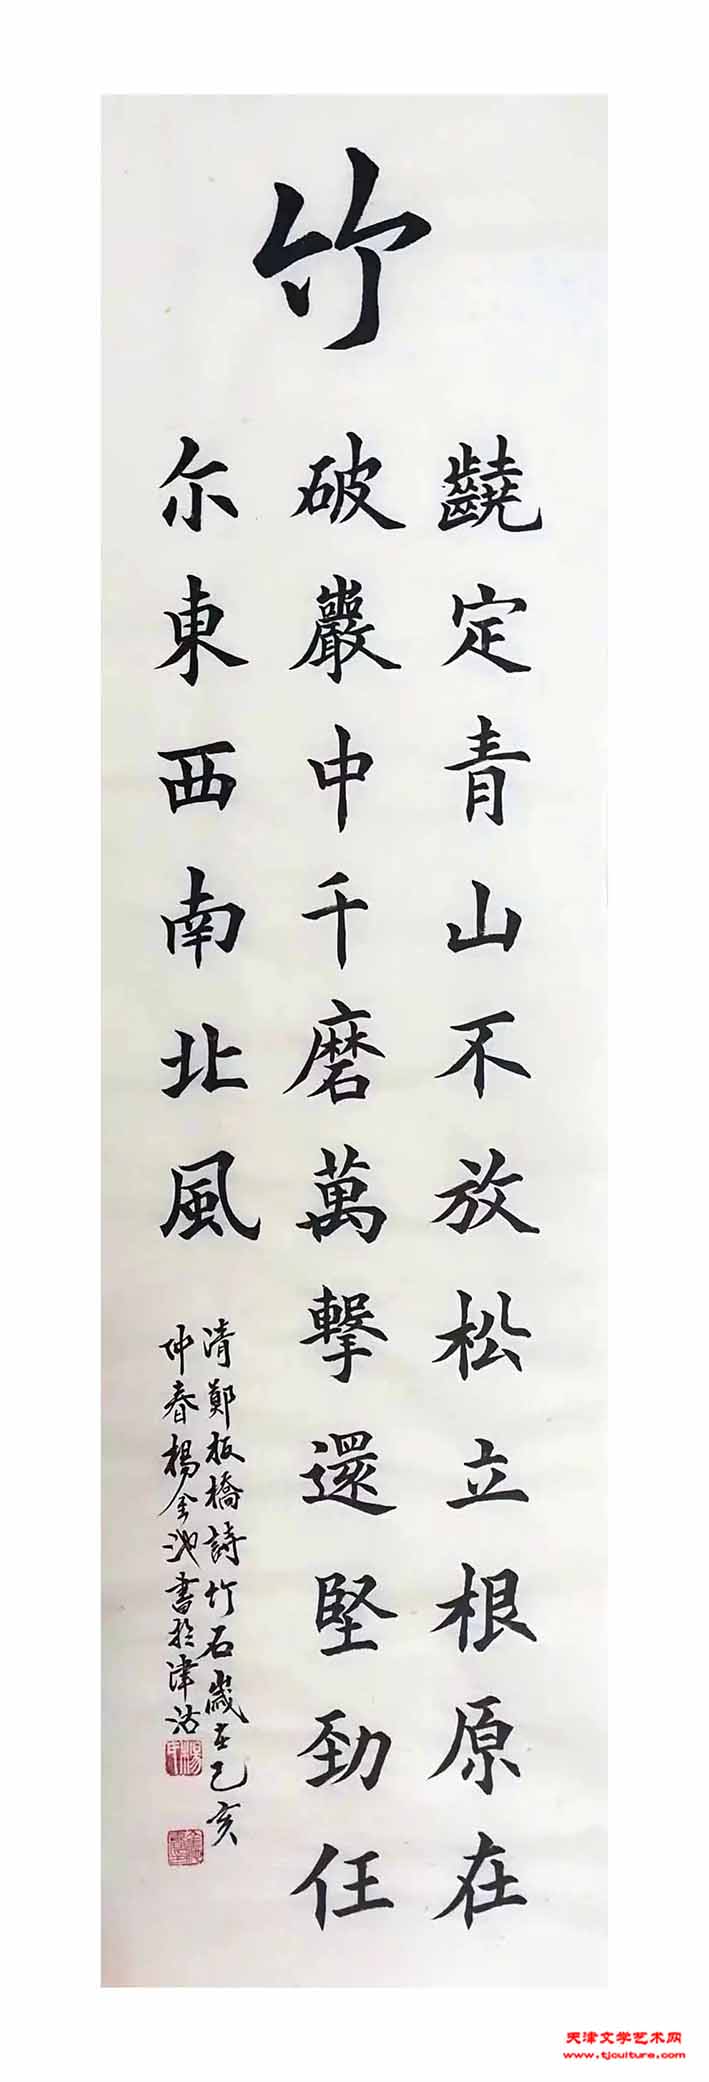 竹
齩定青山不放松立根原在
破巖中千磨萬擊還堅勁任
尔東西南北風
清鄭板橋詩竹石歲在己亥
仲春楊金池書於津沽
天津文学艺术网
www.tjculture.com